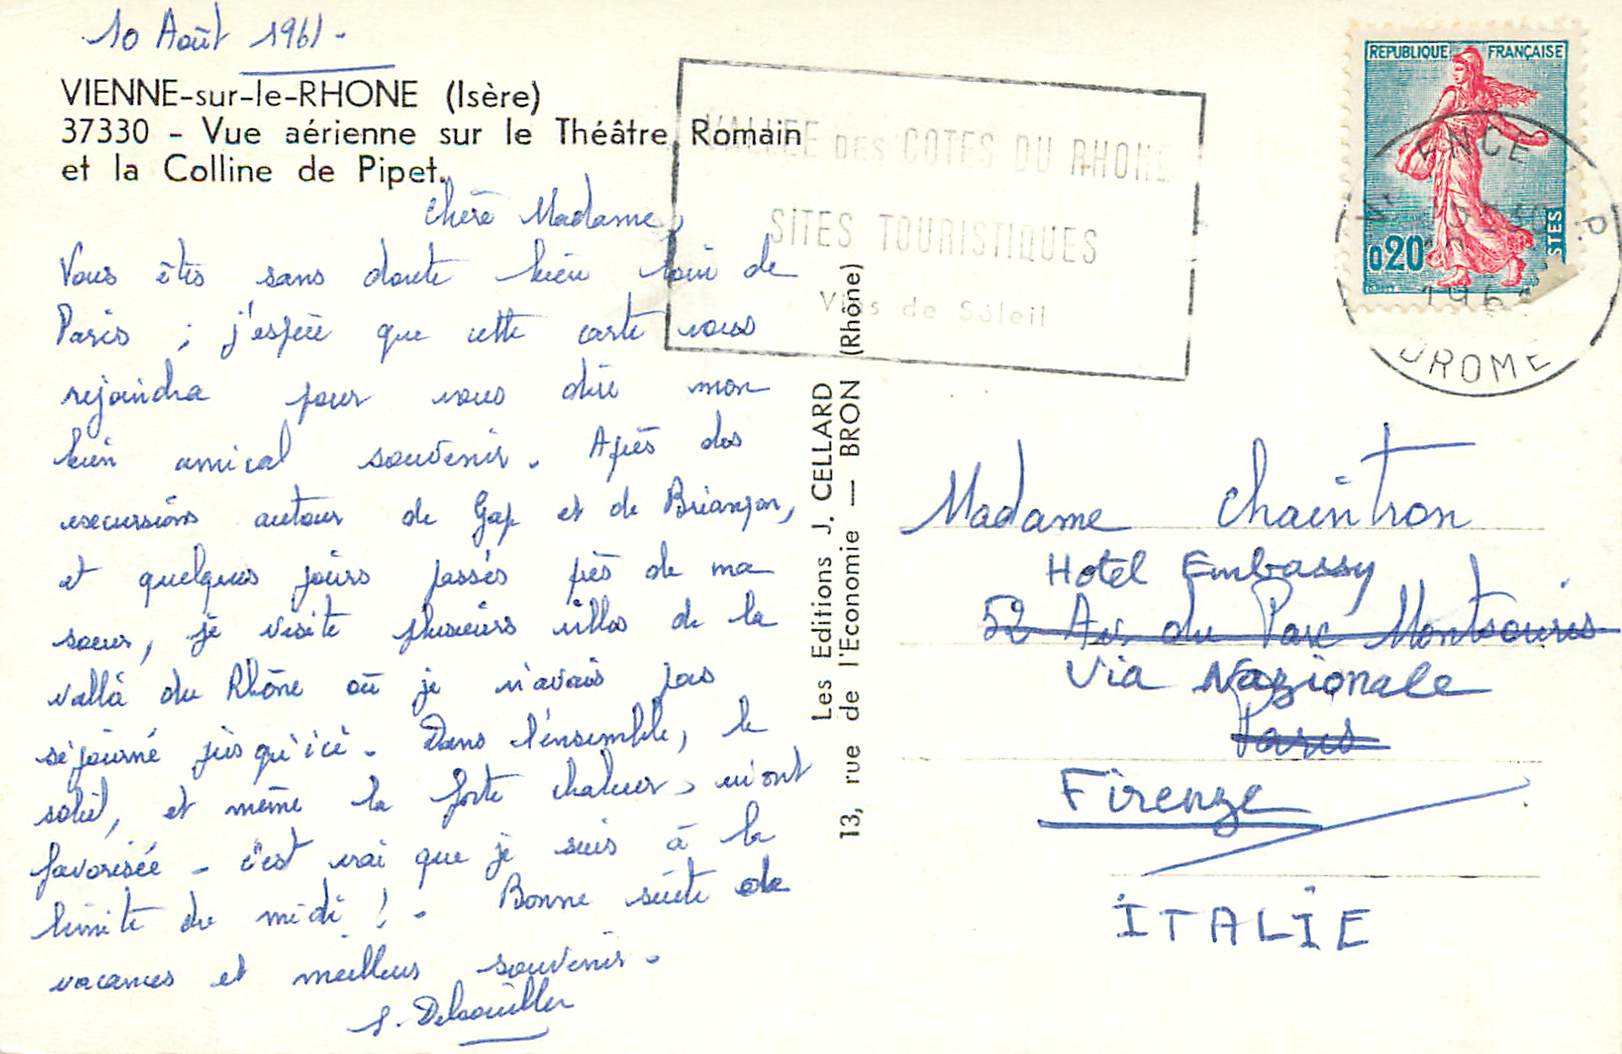 10 Août 1961 -
VIENNE-sur-le-RHONE (Isère)
37330 - Vue aérienne sur le Théâtre Romain
et la Colline de Pipet.
Chère Madame,
Vous êtes sans doute bien loin de
Paris ; j'espère que cette carte vous
rejoindra pour vous dire mon
bien amical souvenir. Après des
excursions autour de Gap et de Briançon,
et quelques jours passés près de ma
soeur, je visite plusieurs villes de la
vallée du Rhône où je n'avais pas
séjourné jusqu'ici. Dans l'ensemble, le
soleil, et même la forte chaleur, m'ont
favorisée - c'est vrai que je suis à la
limite du midi ! - Bonne suite de
vacances et meilleurs souvenirs.
Les Editions J. CELLARD
13, rue de l'Economie — BRON (Rhône)
VALLEE DES COTES DU RHONE
SITES TOURISTIQUES
Vins de Soleil
REPUBLIQUE FRANÇAISE
0,20
POSTES
VALENCE R.P.
DROME
Madame Chaintron
Hotel Embassy
52 Av. du Parc Montsouris
Via Nazionale
Paris
Firenze
ITALIE